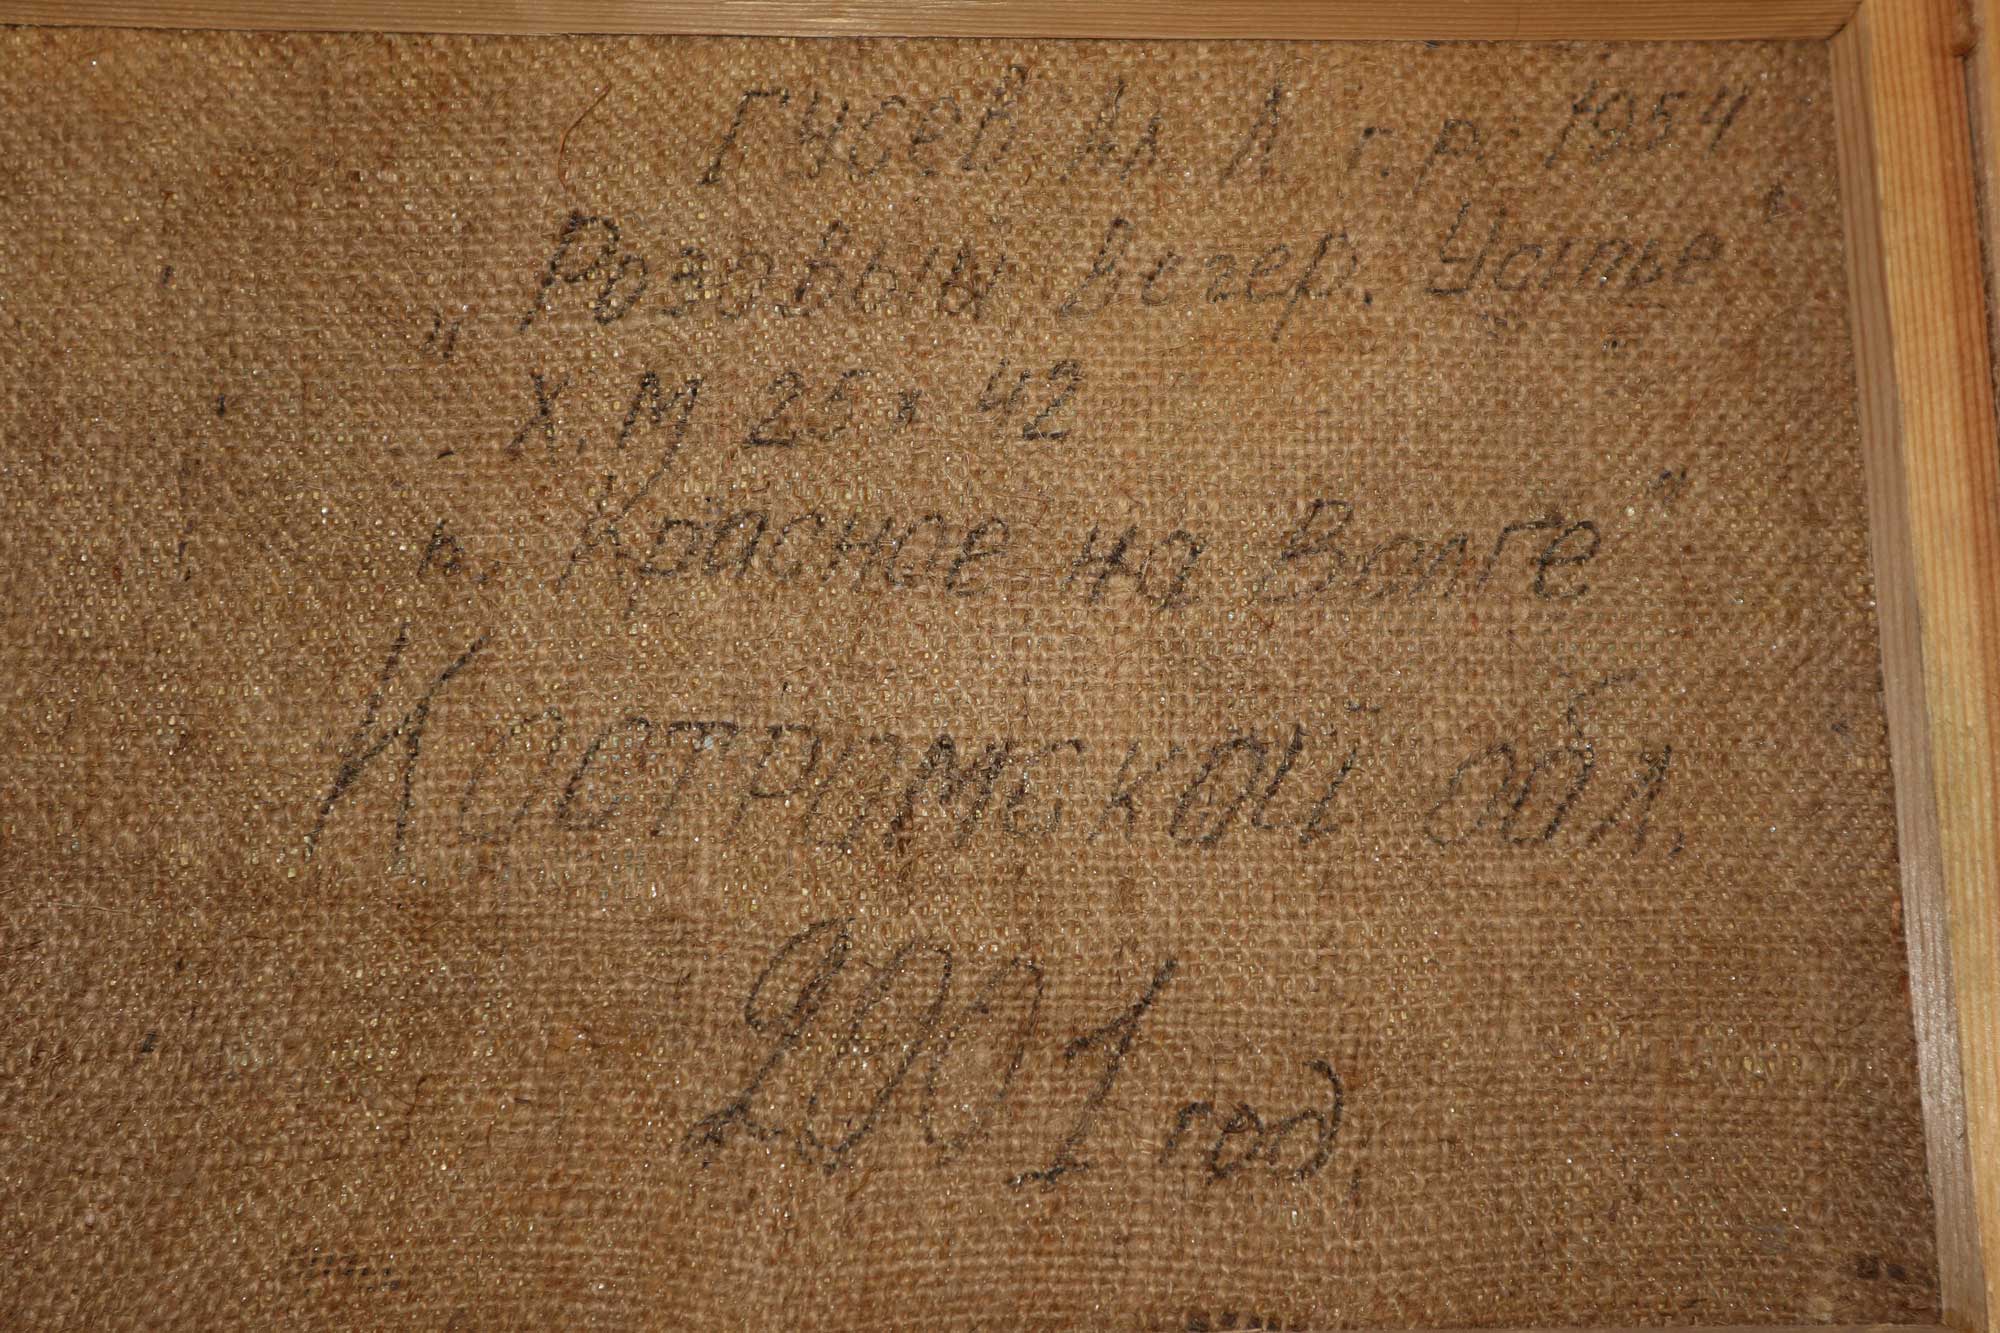 Гусев М Л г.р. 1954
„Розовый вечер. Устье"
Х.М 25х42
п. Красное на Волге"
Костромской обл.
2001 год